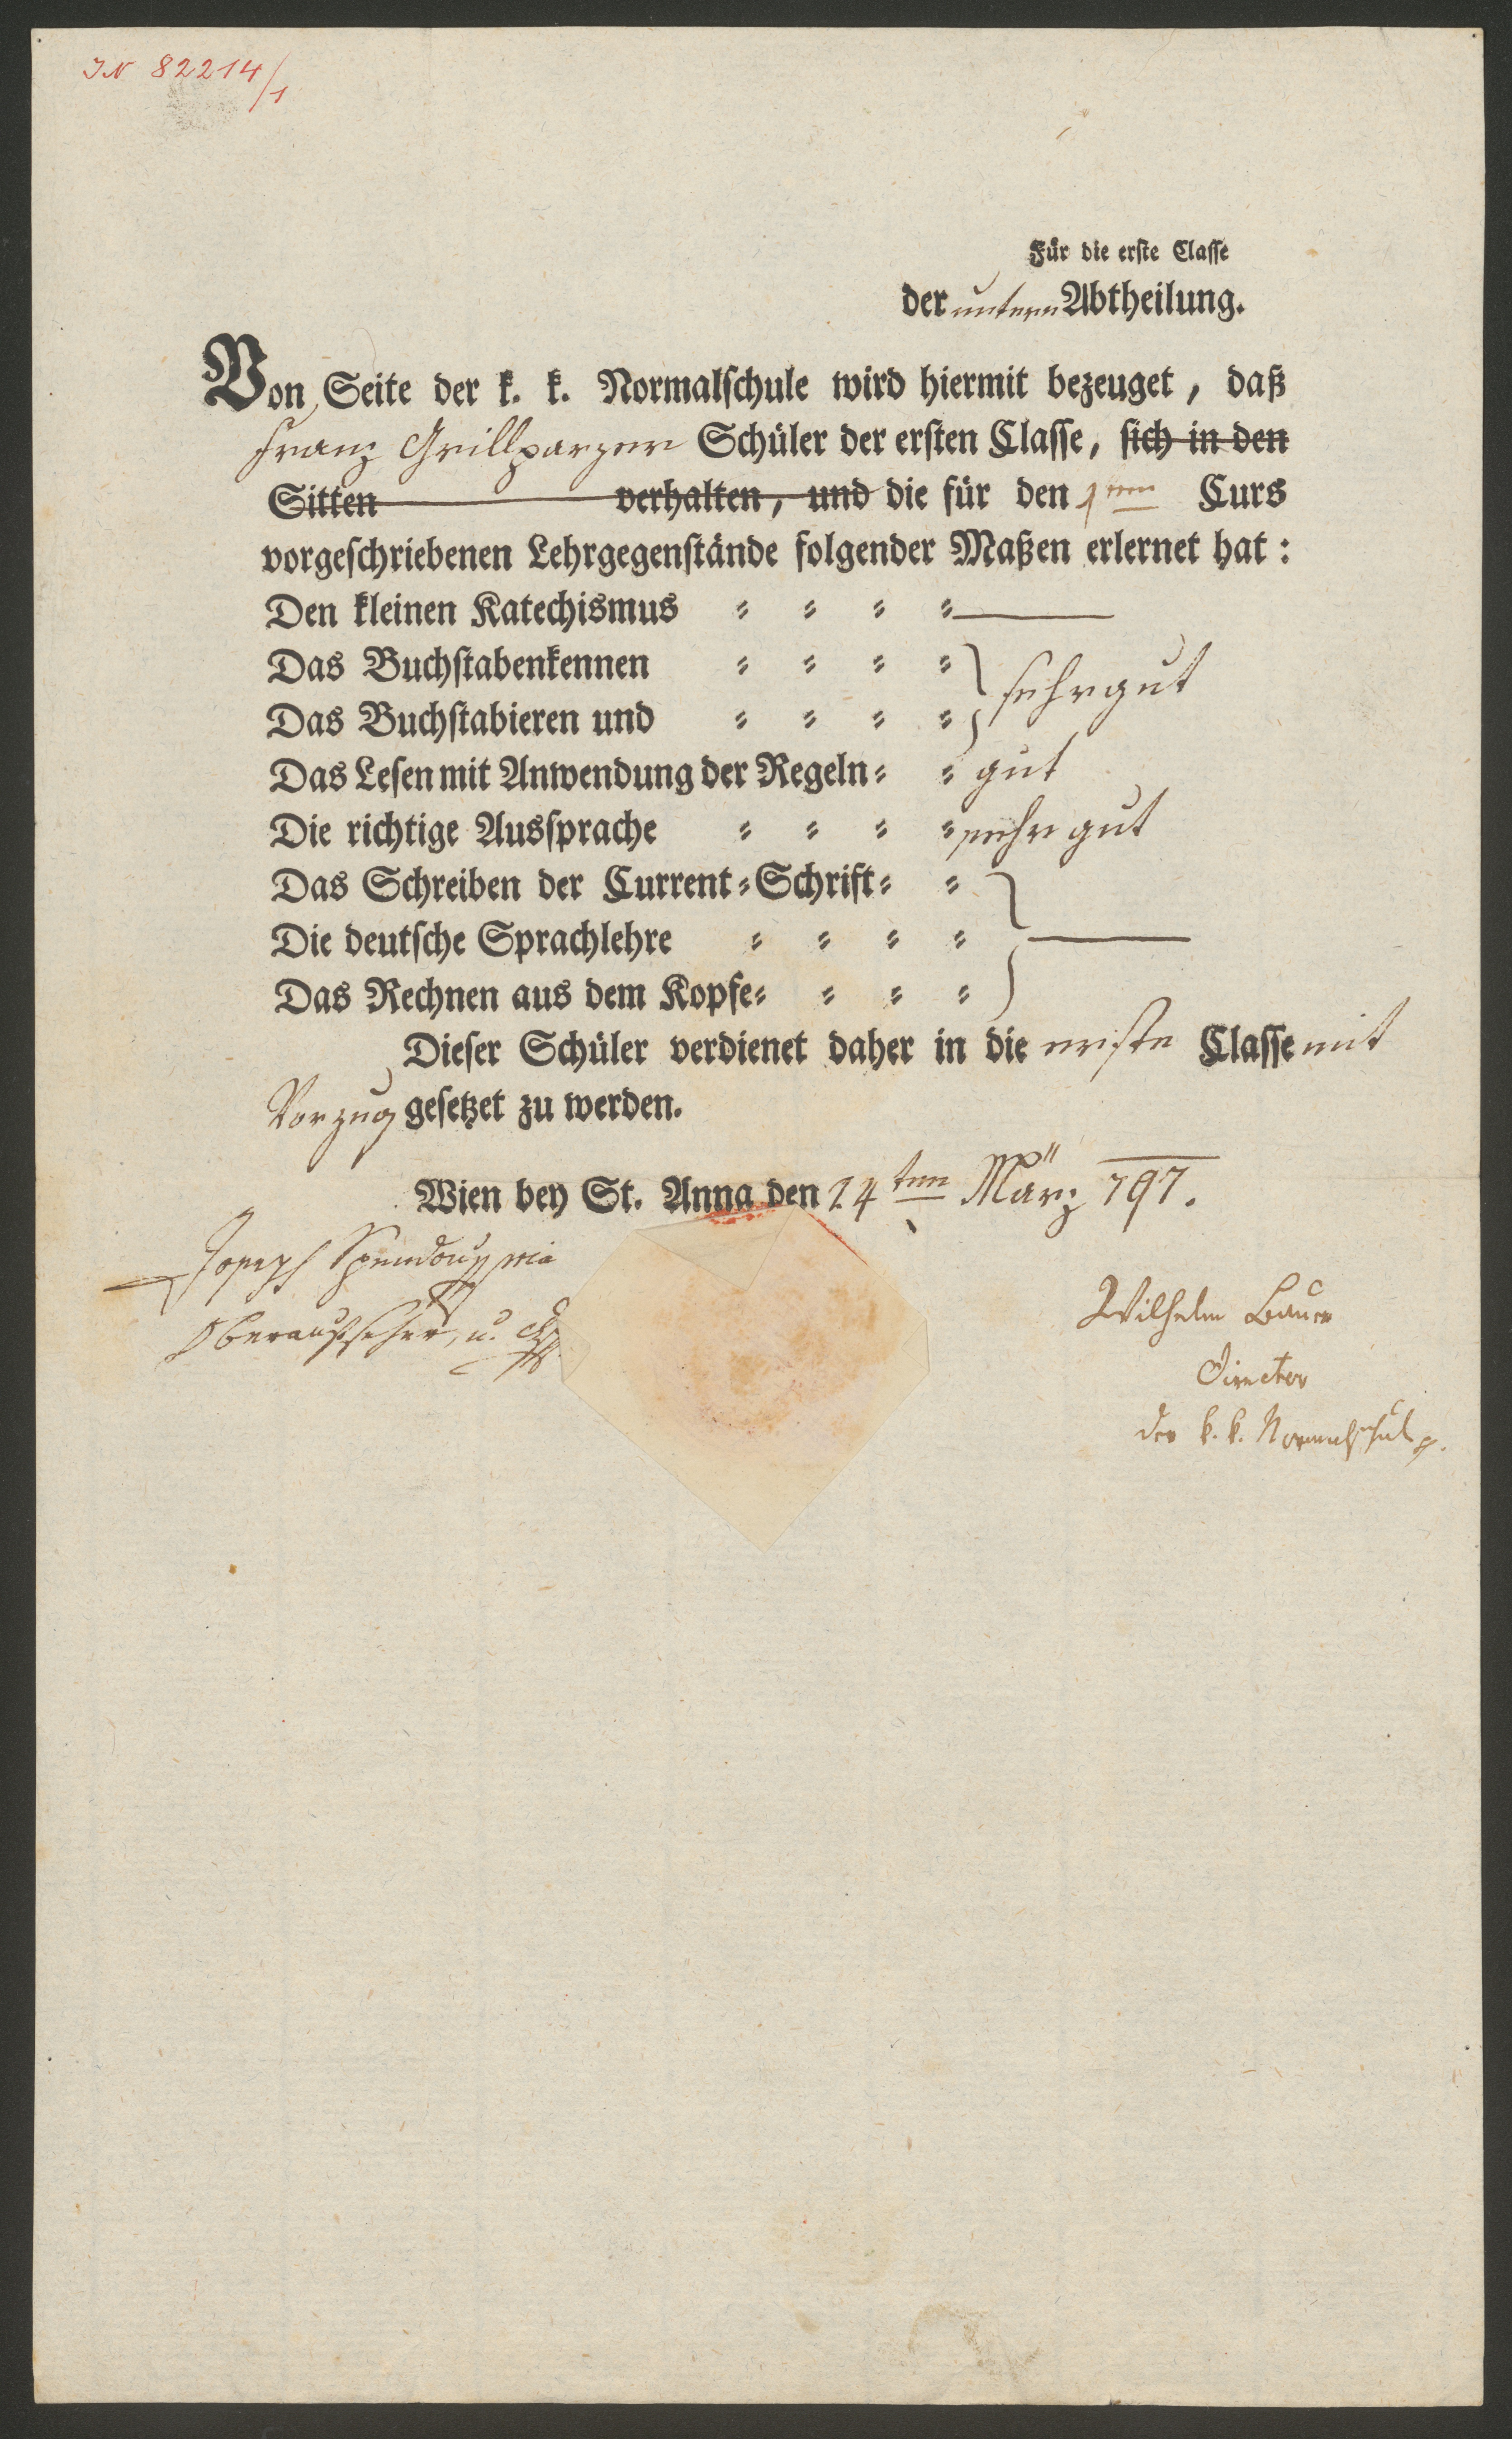 IN 82214/1
Für die erste Classe
der untern Abtheilung.
Von Seite der k. k. Normalschule wird hiermit bezeuget, daß
Franz Grillparzer Schüler der ersten Classe, sich in den
Sitten verhalten, und die für den 1ten Curs
vorgeschriebenen Lehrgegenstände folgender Maßen erlernet hat:
Den kleinen Katechismus = = = = —
Das Buchstabenkennen = = = =
Das Buchstabieren und = = = = } sehr gut
Das Lesen mit Anwendung der Regeln = = gut
Die richtige Aussprache = = = = sehr gut
Das Schreiben der Current=Schrift = =
Die deutsche Sprachlehre = = = = } —
Das Rechnen aus dem Kopfe = = = =
Dieser Schüler verdienet daher in die erste Classe mit
Vorzug gesetzet zu werden.
Wien bey St. Anna den 24ten März 797.
Joseph Spendou mia
Oberaufseher, u.
Wilhelm Bauer
Director
der k. k. Normalschul